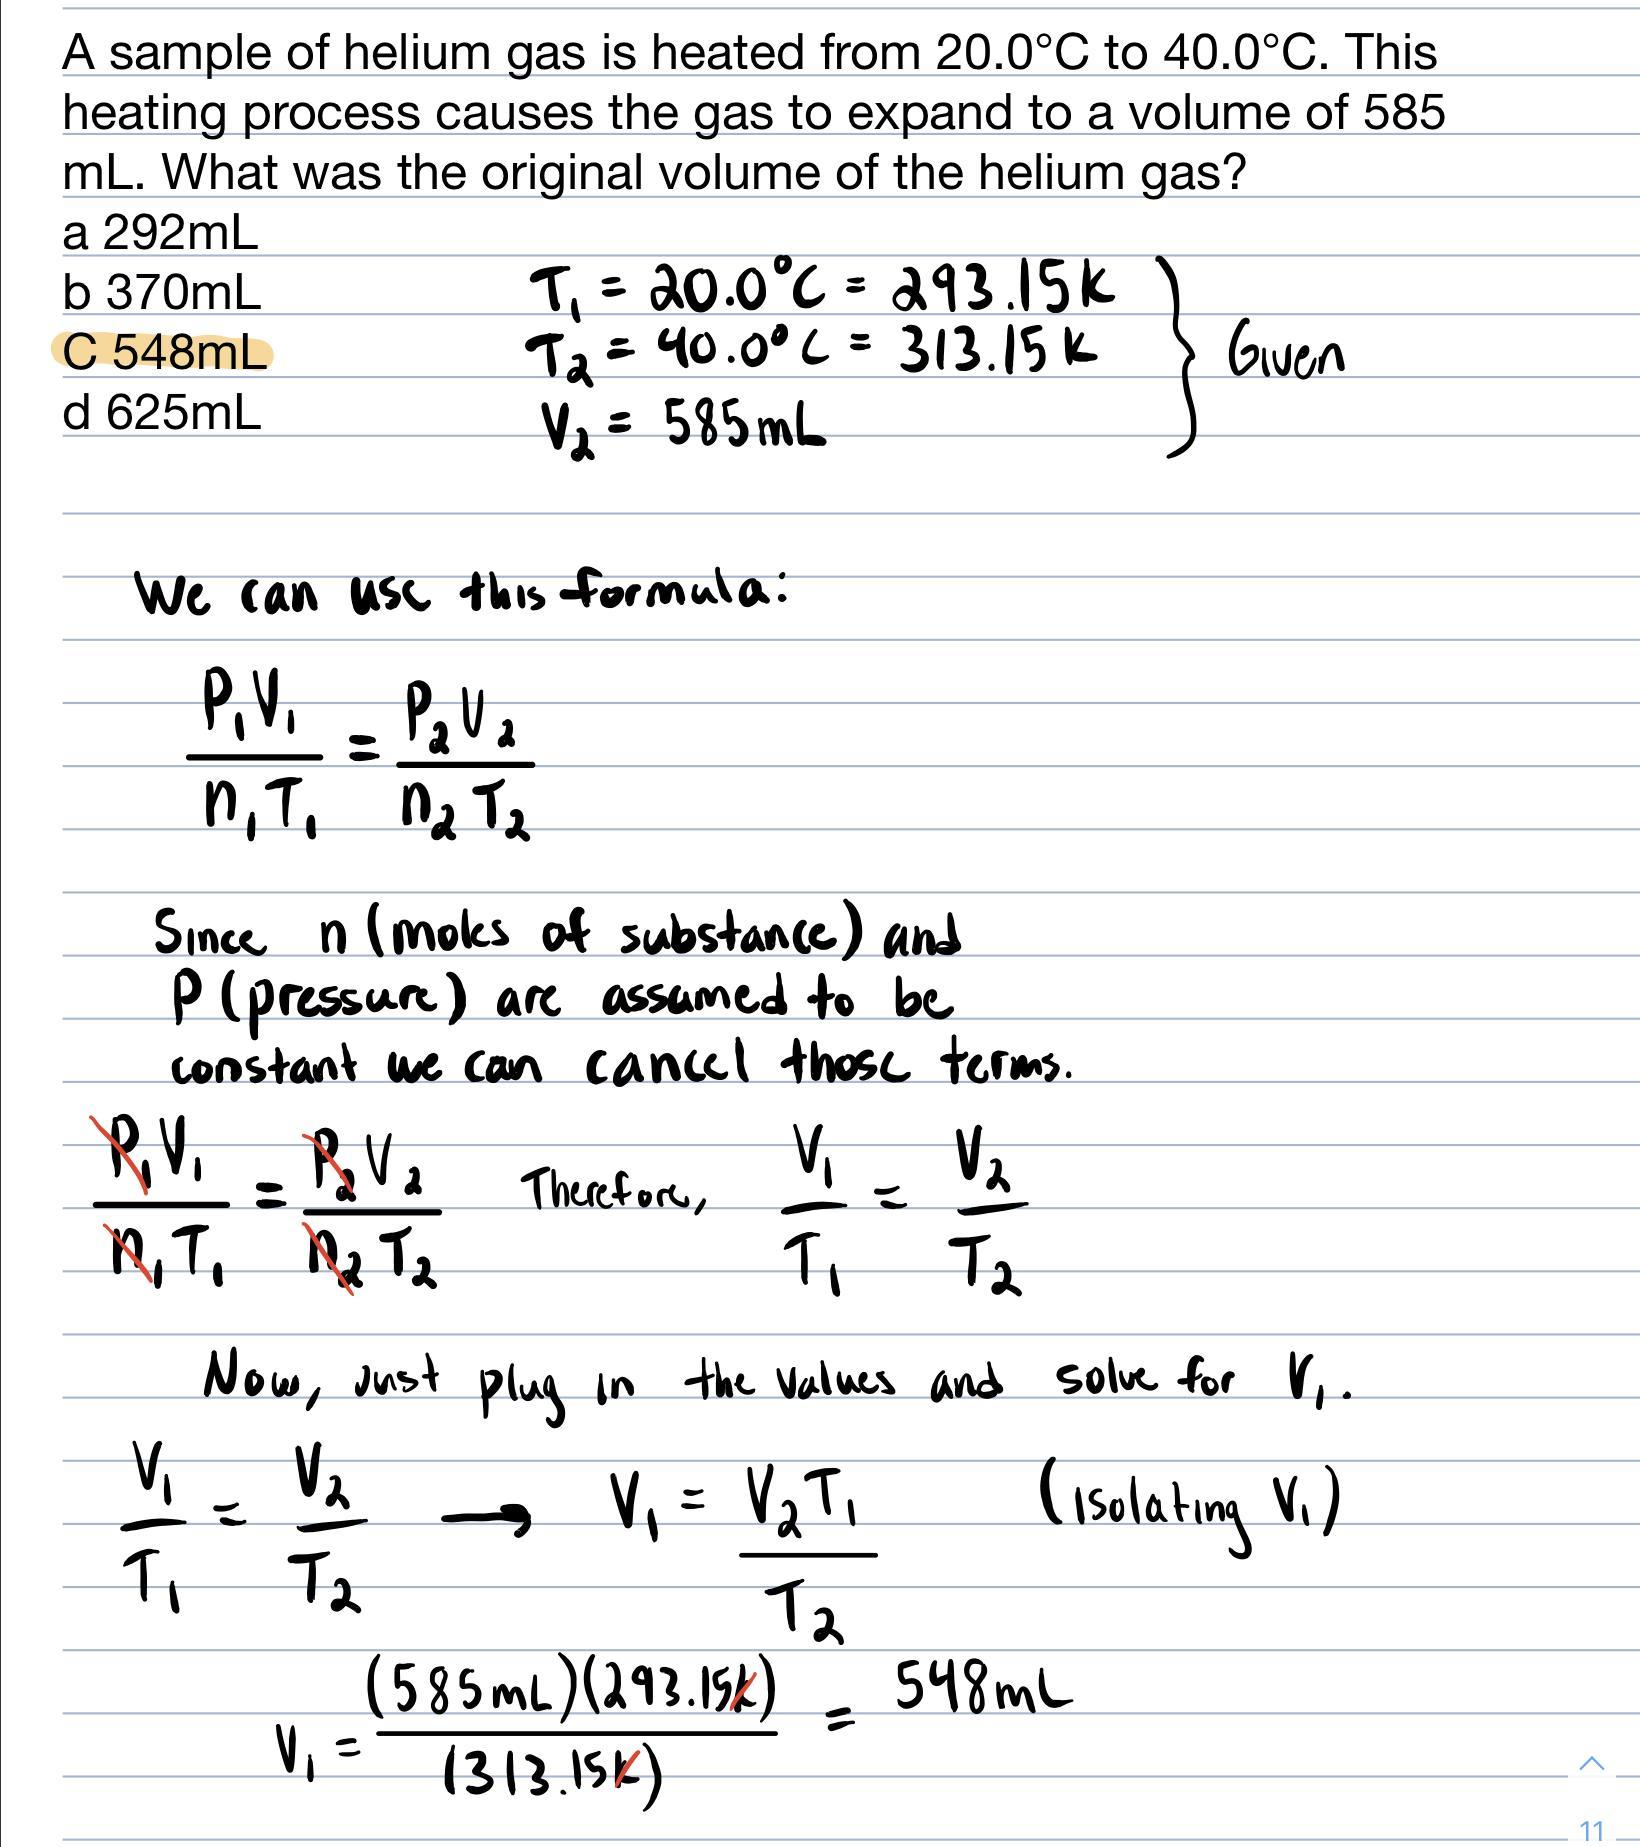 A sample of helium gas is heated from 20.0°C to 40.0°C. This
heating process causes the gas to expand to a volume of 585
mL. What was the original volume of the helium gas?
a 292mL
b 370mL
C 548mL
d 625mL
T₁ = 20.0°C = 293.15K
T₂ = 40.0°C = 313.15K
V₂ = 585mL
Given
We can use this formula:
P₁V₁ / n₁T₁ = P₂V₂ / n₂T₂
Since n (moles of substance) and
P (pressure) are assumed to be
constant we can cancel those terms.
P₁V₁ / n₁T₁ = P₂V₂ / n₂T₂ Therefore, V₁ / T₁ = V₂ / T₂
Now, Just plug in the values and solve for V₁.
V₁ / T₁ = V₂ / T₂ → V₁ = V₂T₁ / T₂ (Isolating V₁)
V₁ = (585mL)(293.15K) / (313.15K) = 548mL
11